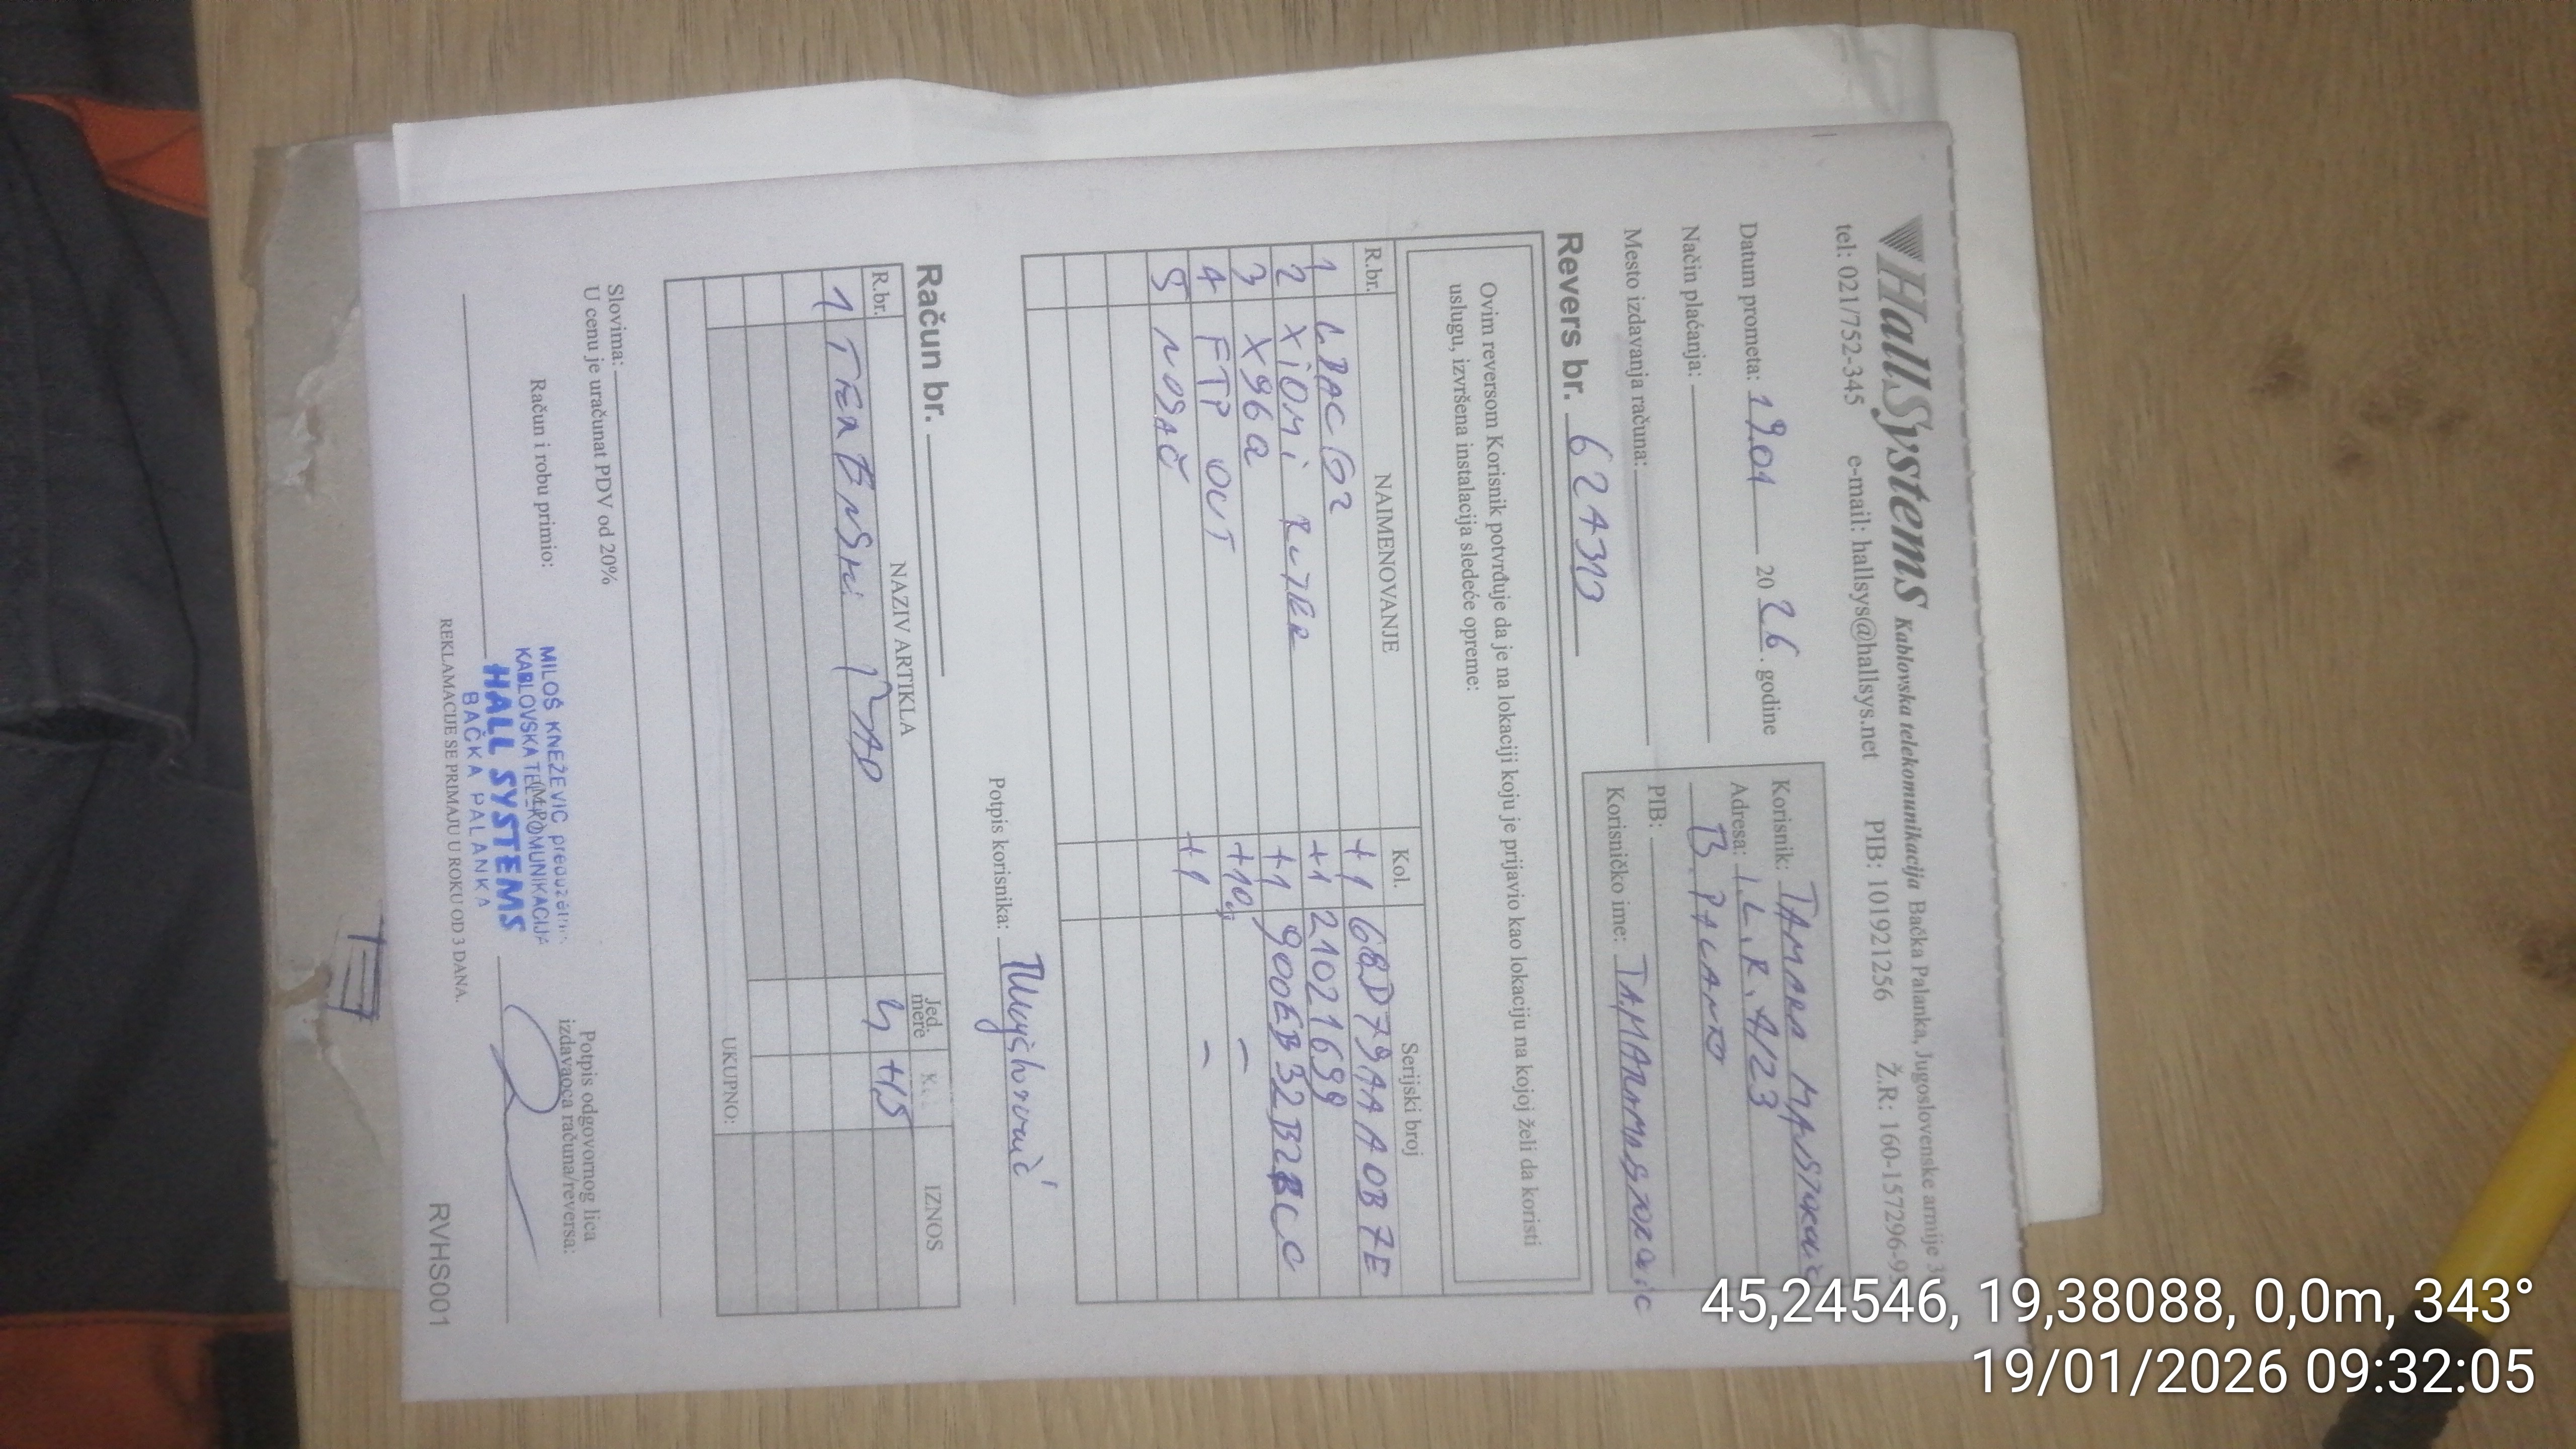 HallSystems Kablovska telekomunikacija Bačka Palanka, Jugoslovenske armije 3
tel: 021/752-345 e-mail: hallsys@hallsys.net PIB: 101921256 Ž.R: 160-157296-9
Datum prometa: 19.01 2026. godine
Način plaćanja:
Mesto izdavanja računa:
Korisnik: TAMARA
Adresa: I.L.R. 4/23
B. PALANKA
PIB:
Korisničko ime:
Revers br. 624313
Ovim reversom Korisnik potvrđuje da je na lokaciji koju je prijavio kao lokaciju na kojoj želi da koristi
uslugu, izvršena instalacija sledeće opreme:
R.br. NAIMENOVANJE Kol. Serijski broj
1 LBAC G2 +1 68D79AAA0B7E
2 XIOMI RUTER +1 21021699
3 X96Q +1 900EB32B2BCC
4 FTP OUT +10m -
5 NOSAČ +1 -
Potpis korisnika:
Račun br.
R.br. NAZIV ARTIKLA Jed. mere Kol. IZNOS
1 TERENSKI RAD h +1,5
UKUPNO:
Slovima:
U cenu je uračunat PDV od 20%
Račun i robu primio:
(M.P.)
Potpis odgovornog lica
izdavaoca računa/reversa:
MILOŠ KNEŽEVIĆ preduzetnik
KABLOVSKA TELEKOMUNIKACIJA
HALL SYSTEMS
BAČKA PALANKA
REKLAMACIJE SE PRIMAJU U ROKU OD 3 DANA.
RVHS001
45,24546, 19,38088, 0,0m, 343°
19/01/2026 09:32:05